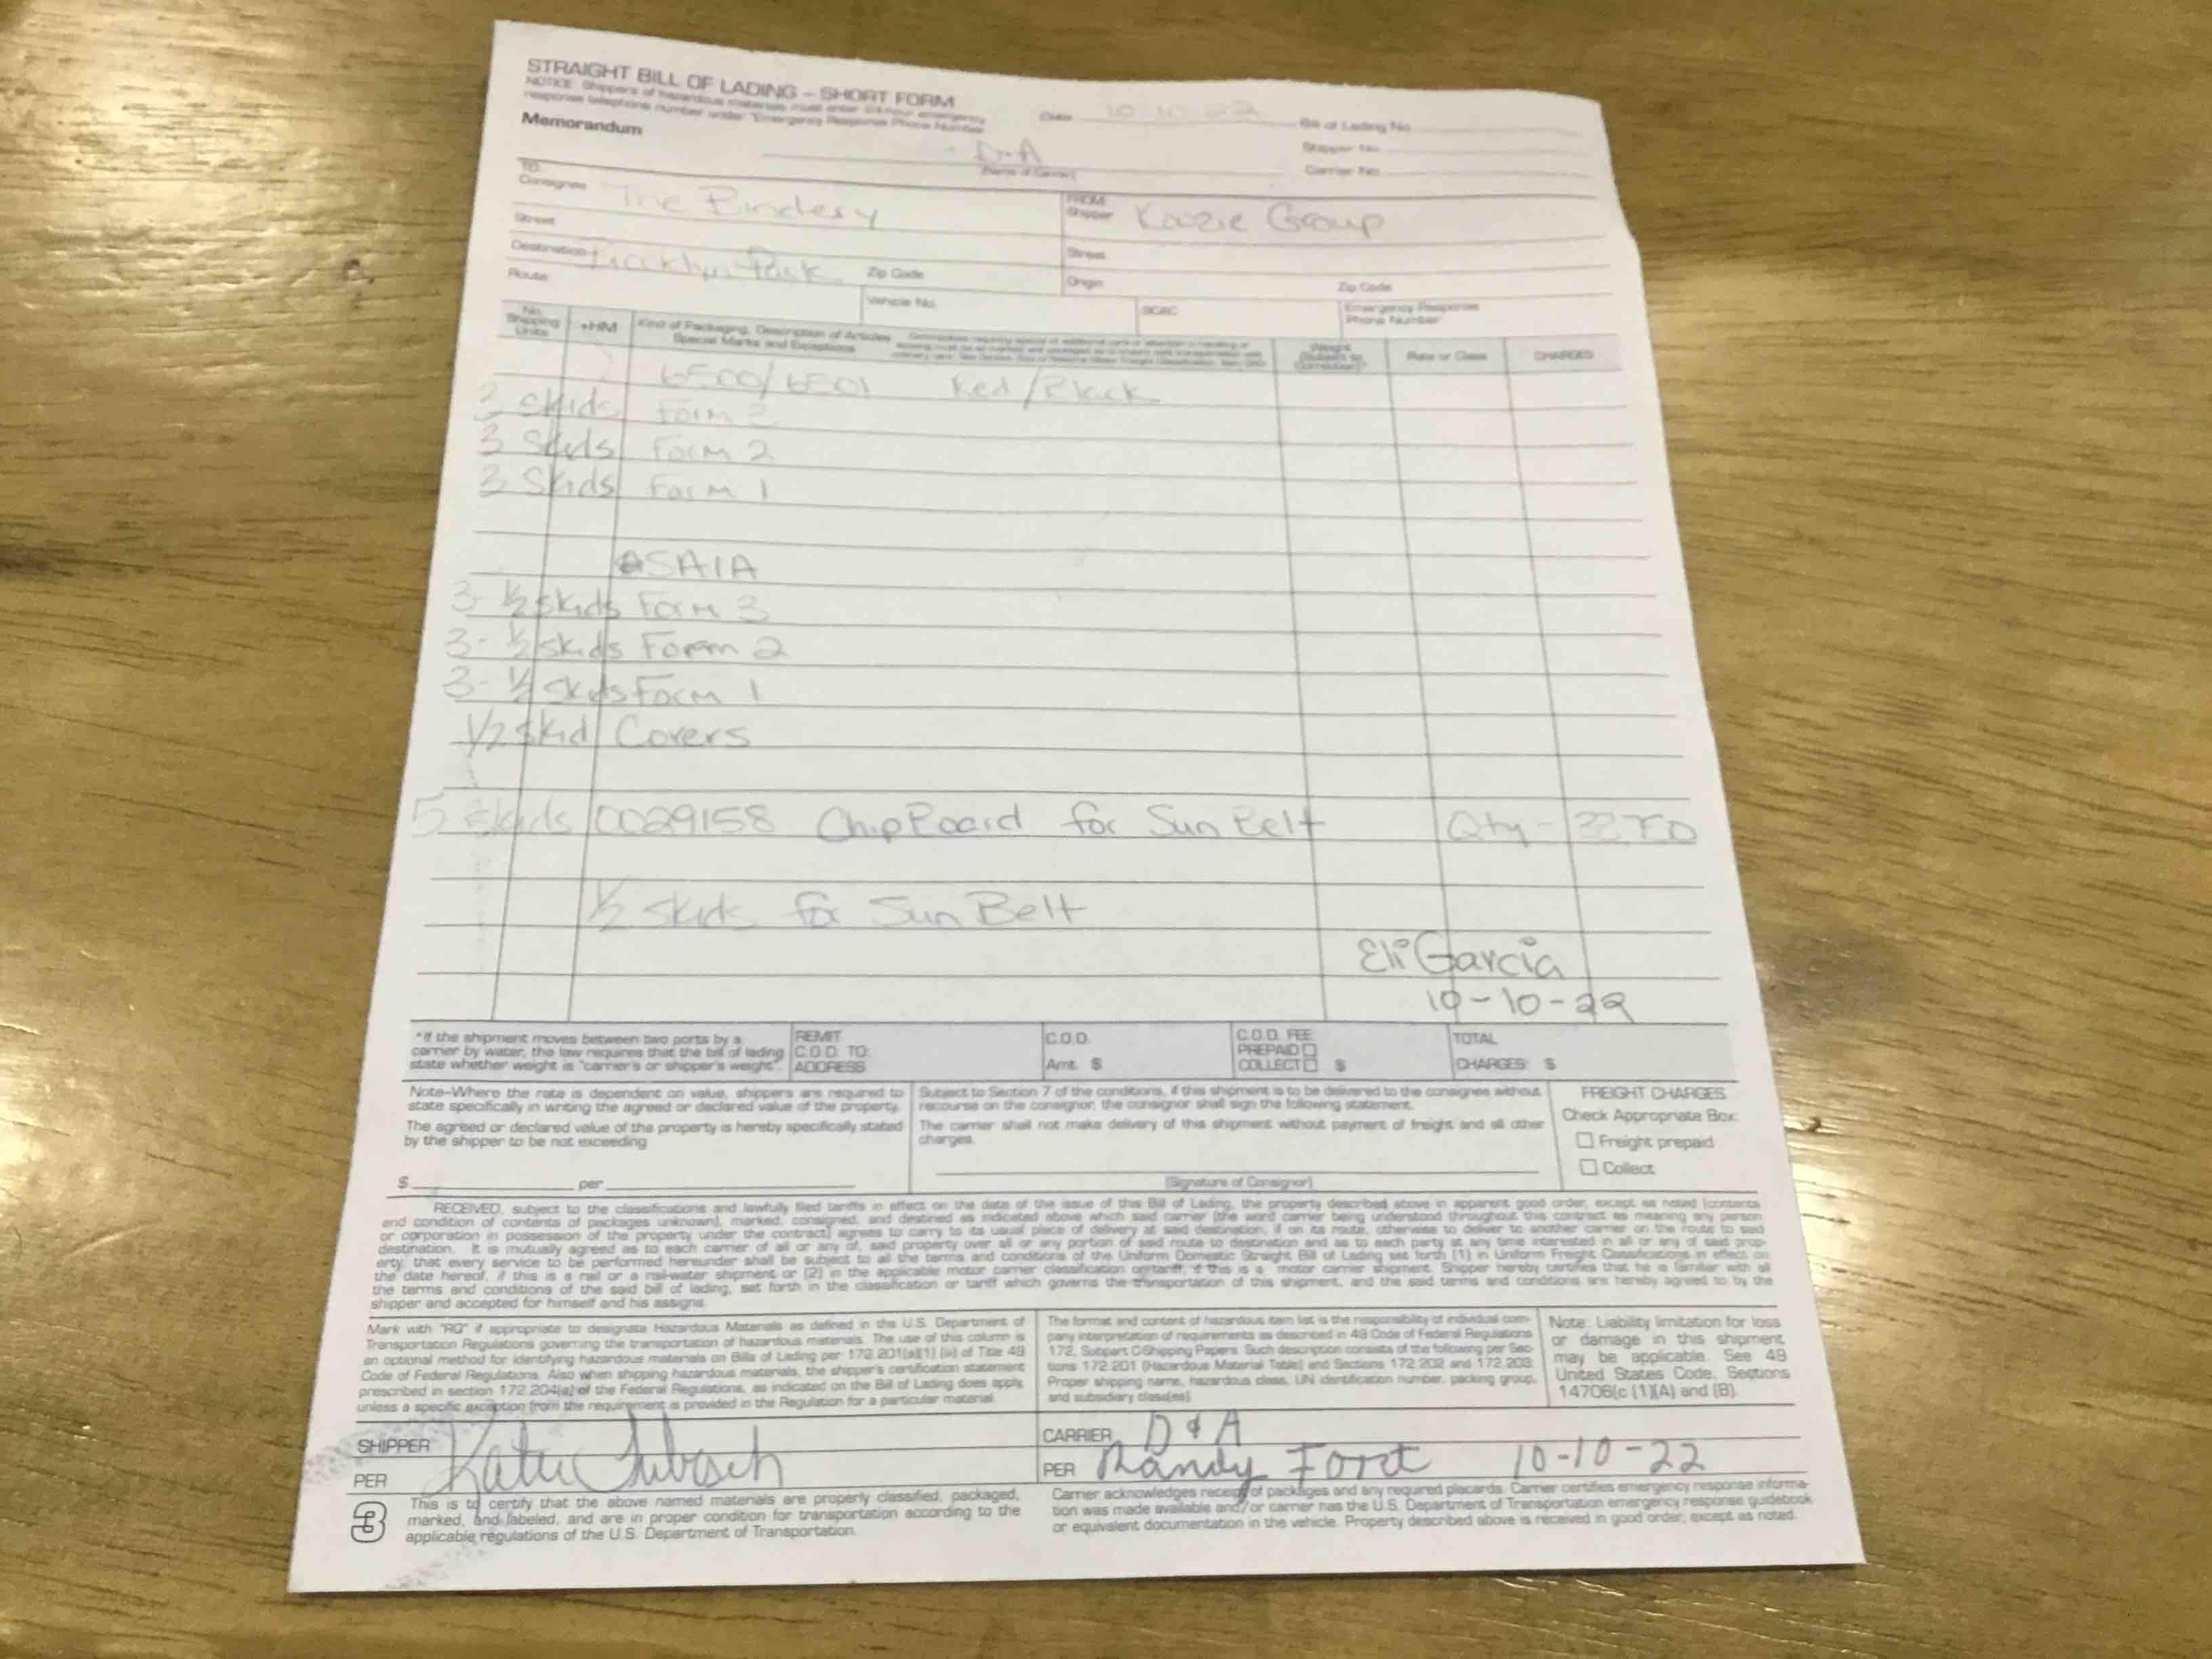 STRAIGHT BILL OF LADING – SHORT FORM
NOTICE: Shippers of hazardous materials must enter 24-hour emergency
response telephone number under "Emergency Response Phone Number
Memorandum
Date 10-10-22
Bill of Lading No.
Shipper No.
Carrier No.
D+A
(Name of Carrier)
TO:
Consignee The Bindery
Street
Destination Park
Zip Code
Route:
Vehicle No.
FROM:
Shipper Group
Street
Origin
Zip Code
SCAC
Emergency Response
Phone Number
No.
Shipping
Units
+HM
Kind of Packaging, Description of Articles
Special Marks and Exceptions
Weight
(Subject to
Correction)*
Rate or Class
CHARGES
6500/6501 Red/Black
skids Form
3 skids Form 2
3 Skids Form 1
SAIA
3- 1/2 skids Form 3
3- 1/2 skids Form 2
3- 1/2 skids Form 1
1/2 skid Covers
5 skids 0029158 ChipBoard for Sun Belt Qty -
1/2 skids for Sun Belt
Eli Garcia
10-10-22
*If the shipment moves between two ports by a
carrier by water, the law requires that the bill of lading
state whether weight is "carrier's or shipper's weight".
REMIT
C.O.D. TO:
ADDRESS
C.O.D.
Amt. $
C.O.D. FEE:
PREPAID
COLLECT $
TOTAL
CHARGES: $
Note–Where the rate is dependent on value, shippers are required to
state specifically in writing the agreed or declared value of the property.
The agreed or declared value of the property is hereby specifically stated
by the shipper to be not exceeding
$ per
Subject to Section 7 of the conditions, if this shipment is to be delivered to the consignee without
recourse on the consignor, the consignor shall sign the following statement.
The carrier shall not make delivery of this shipment without payment of freight and all other
charges.
(Signature of Consignor)
FREIGHT CHARGES
Check Appropriate Box:
Freight prepaid
Collect
RECEIVED, subject to the classifications and lawfully filed tariffs in effect on the date of the issue of this Bill of Lading, the property described above in apparent good order, except as noted (contents
and condition of contents of packages unknown), marked, consigned, and destined as indicated above which said carrier (the word carrier being understood throughout this contract as meaning any person
or corporation in possession of the property under the contract) agrees to carry to its usual place of delivery at said destination, if on its route, otherwise to deliver to another carrier on the route to said
destination. It is mutually agreed as to each carrier of all or any of, said property over all or any portion of said route to destination and as to each party at any time interested in all or any of said prop-
erty, that every service to be performed hereunder shall be subject to all the terms and conditions of the Uniform Domestic Straight Bill of Lading set forth (1) in Uniform Freight Classifications in effect on
the date hereof, if this is a rail or a rail-water shipment or (2) in the applicable motor carrier classification or tariff, if this is a motor carrier shipment. Shipper hereby certifies that he is familiar with all
the terms and conditions of the said bill of lading, set forth in the classification or tariff which governs the transportation of this shipment, and the said terms and conditions are hereby agreed to by the
shipper and accepted for himself and his assigns.
Mark with "RQ" if appropriate to designate Hazardous Materials as defined in the U.S. Department of
Transportation Regulations governing the transportation of hazardous materials. The use of this column is
an optional method for identifying hazardous materials on Bills of Lading per 172.201(a)(1) (iii) of Title 49
Code of Federal Regulations. Also when shipping hazardous materials, the shipper's certification statement
prescribed in section 172.204(a) of the Federal Regulations, as indicated on the Bill of Lading does apply,
unless a specific exception from the requirement is provided in the Regulation for a particular material.
The format and content of hazardous item list is the responsibility of individual com-
pany interpretation of requirements as described in 49 Code of Federal Regulations
172, Subpart C-Shipping Papers. Such description consists of the following per Sec-
tions 172.201 (Hazardous Material Table) and Sections 172.202 and 172.203:
Proper shipping name, hazardous class, UN identification number, packing group,
and subsidiary class(es).
Note: Liability limitation for loss
or damage in this shipment
may be applicable. See 49
United States Code, Sections
14706(c (1)(A) and (B).
SHIPPER
PER Katie
CARRIER D & A
PER Randy Ford 10-10-22
3
This is to certify that the above named materials are properly classified, packaged,
marked, and labeled, and are in proper condition for transportation according to the
applicable regulations of the U.S. Department of Transportation.
Carrier acknowledges receipt of packages and any required placards. Carrier certifies emergency response informa-
tion was made available and/or carrier has the U.S. Department of Transportation emergency response guidebook
or equivalent documentation in the vehicle. Property described above is received in good order, except as noted.